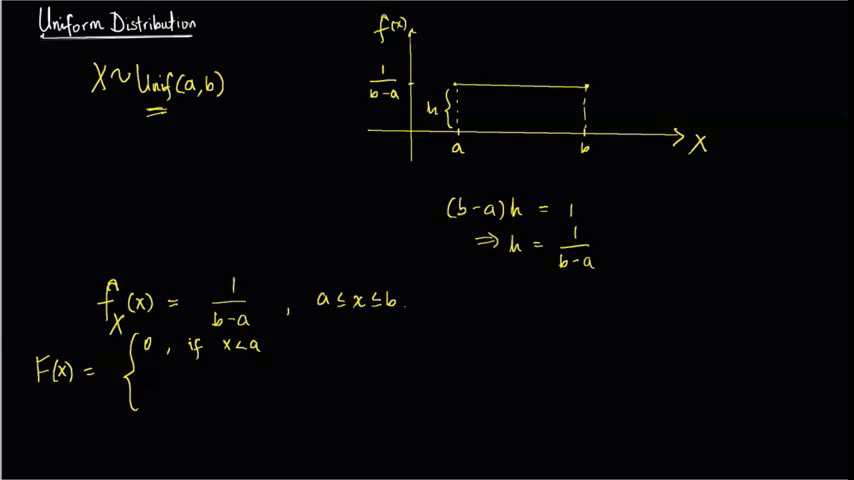 Uniform Distribution
X ~ Unif(a,b)
f(x)
1/(b-a)
h {
a
b
X
(b-a)h = 1
⇒ h = 1/(b-a)
f_X(x) = 1/(b-a) , a ≤ x ≤ b.
F(x) = { 0 , if x<a